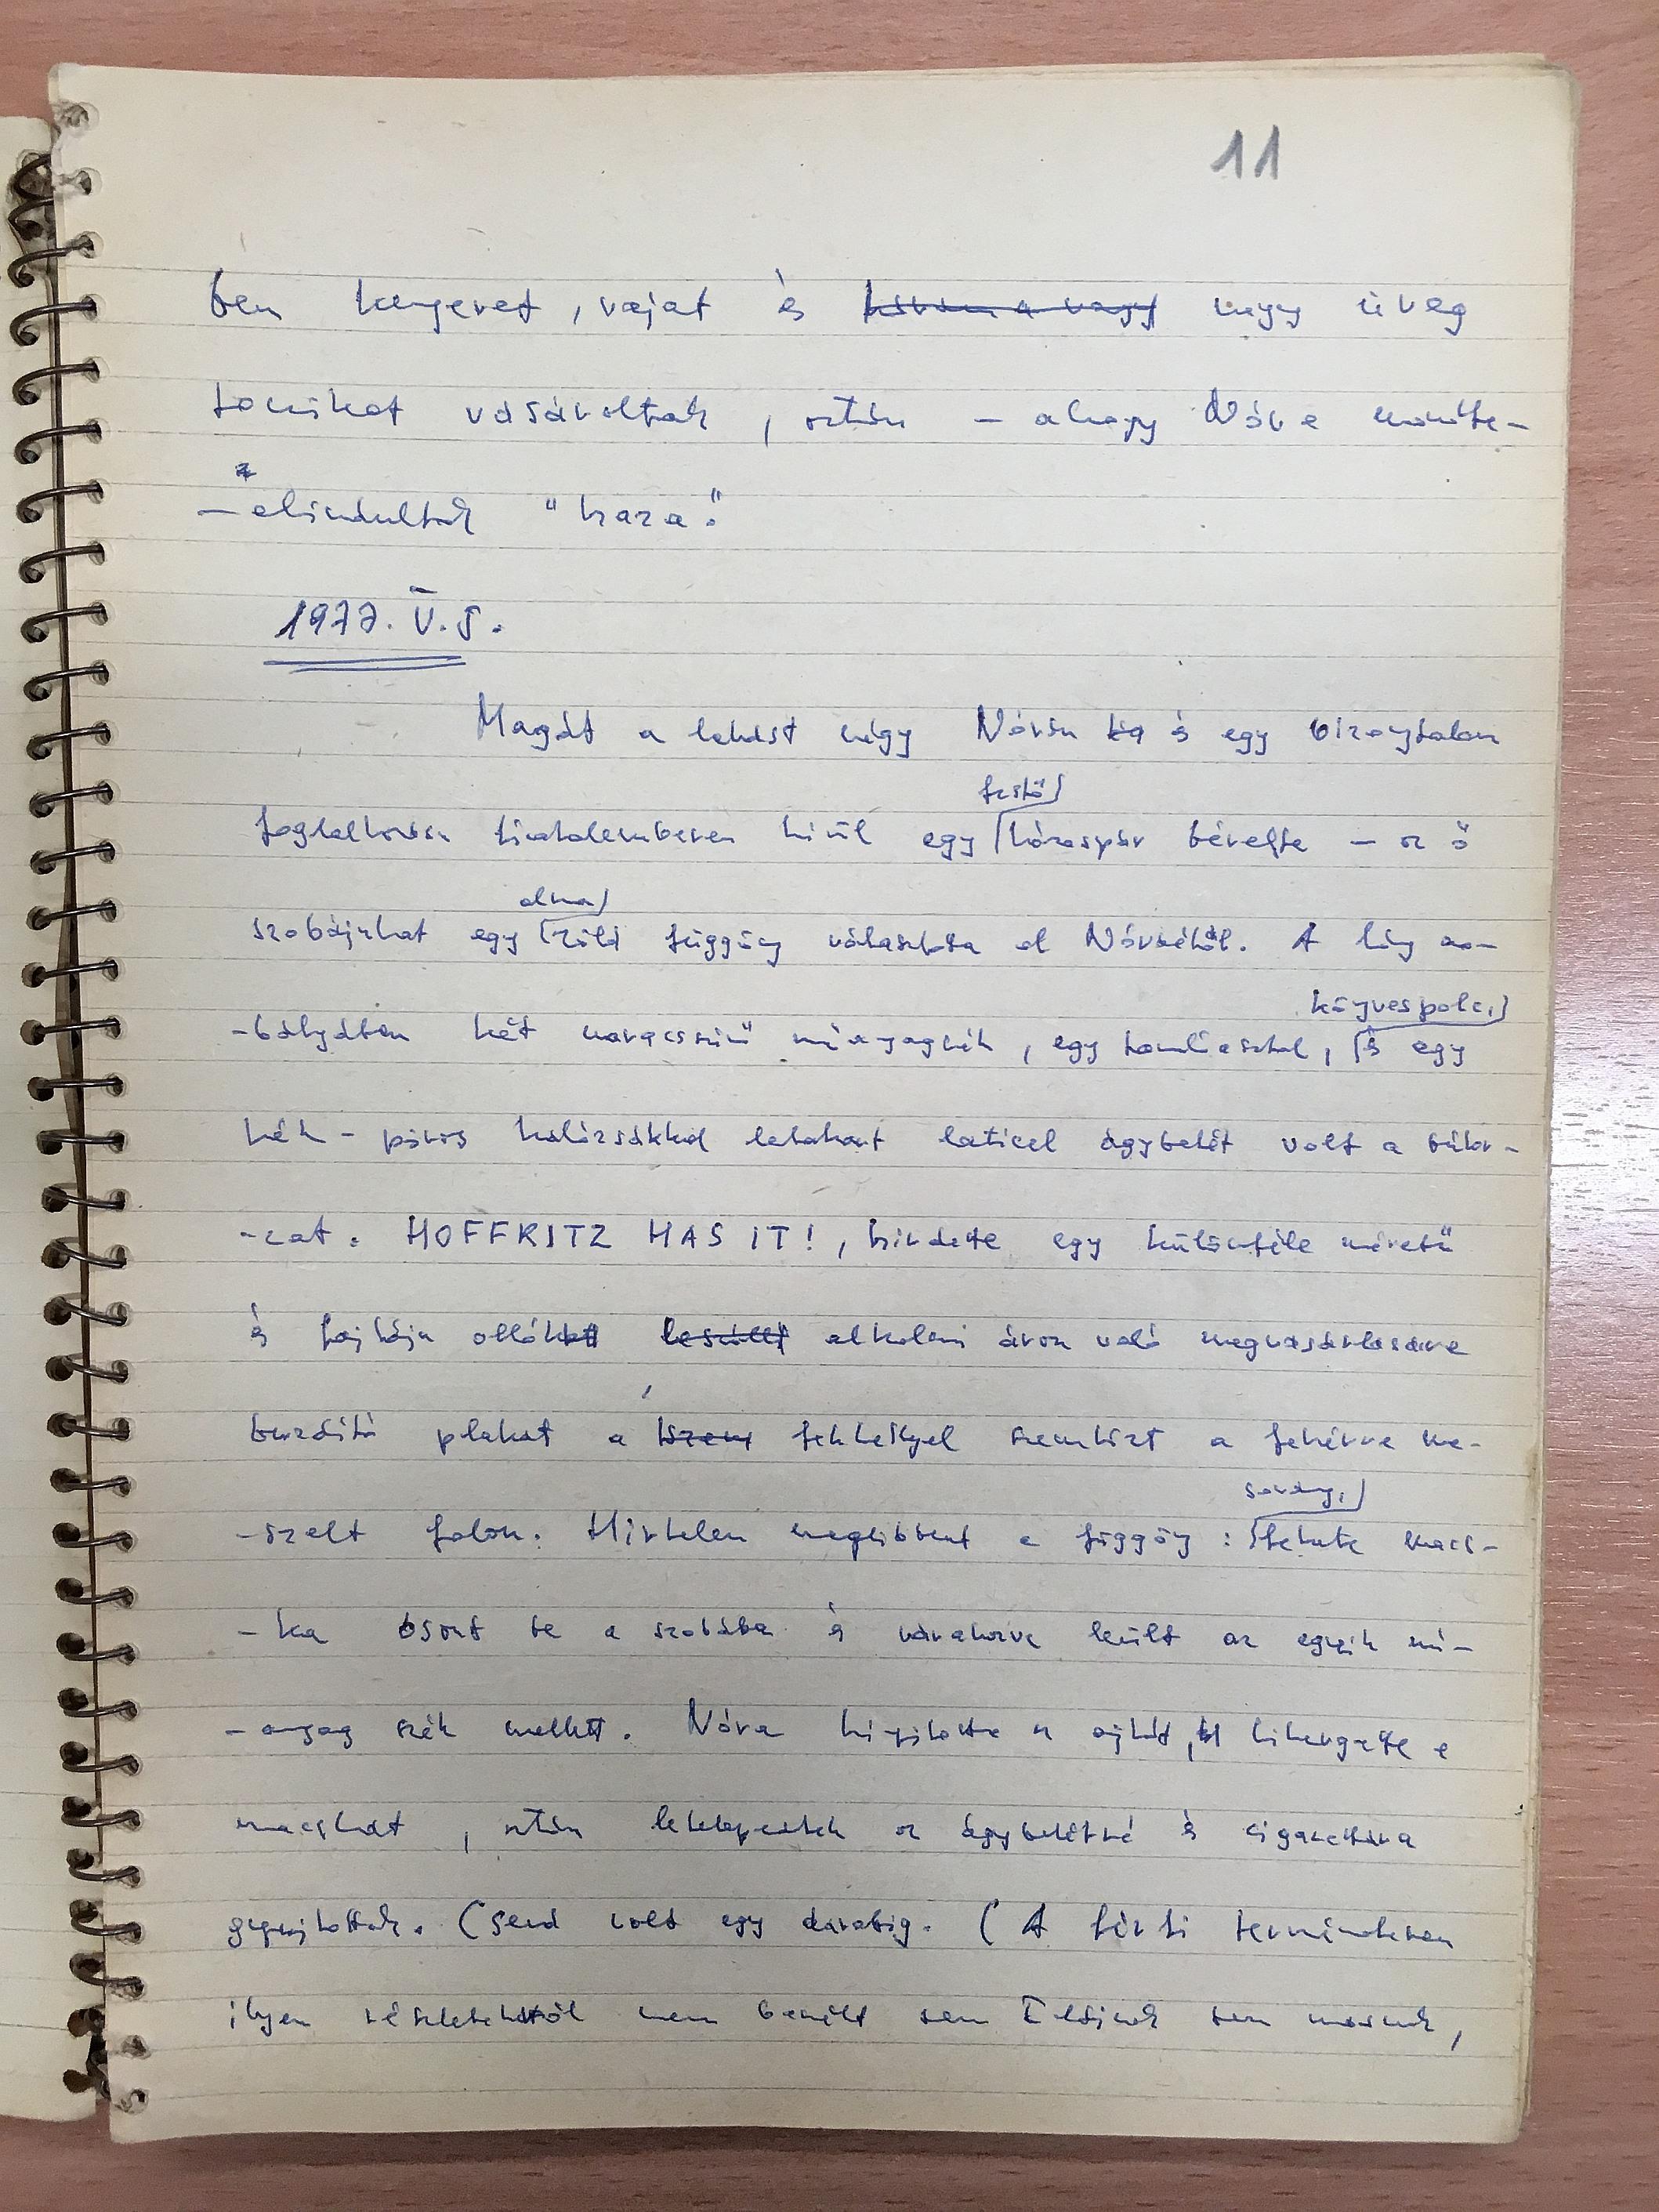 11
ben kenyeret, vajat és négy üveg
tonikot vásároltak, aztán – ahogy Nóra mondta –
– elindultak "haza".
1977. V. 5.
Magát a lakást négy Nórán és egy bizonytalan
foglalkozású fiatalemberen kívül egy festő házaspár bérelte – az ő
szobájukat egy alma zöld függöny választotta el Nóráétól. A lány szo-
-bájában két narancsszínű műanyagszék, egy asztal, könyvespolc, és egy
kék-piros kalózsákkal letakart laticel ágybetét volt a bútor-
-zat. HOFFRITZ HAS IT!, hirdette egy különféle méretű
és fajtájú ollók alkalmi áron való megvásárlására
buzdító plakát a fekhellyel szemközt a fehérre me-
-szelt falon. Hirtelen meglibbent a függöny: sovány, fekete macs-
-ka osont be a szobába és várakozva leült az egyik mű-
-anyag szék mellett. Nóra kinyitotta az ajtót, kikergette a
macskát, aztán letelepedtek az ágybetétre és cigarettára
gyújtottak. Csend volt egy darabig. (A férfi természetesen
ilyen részletektől nem beszélt sem Edinek sem másnak,